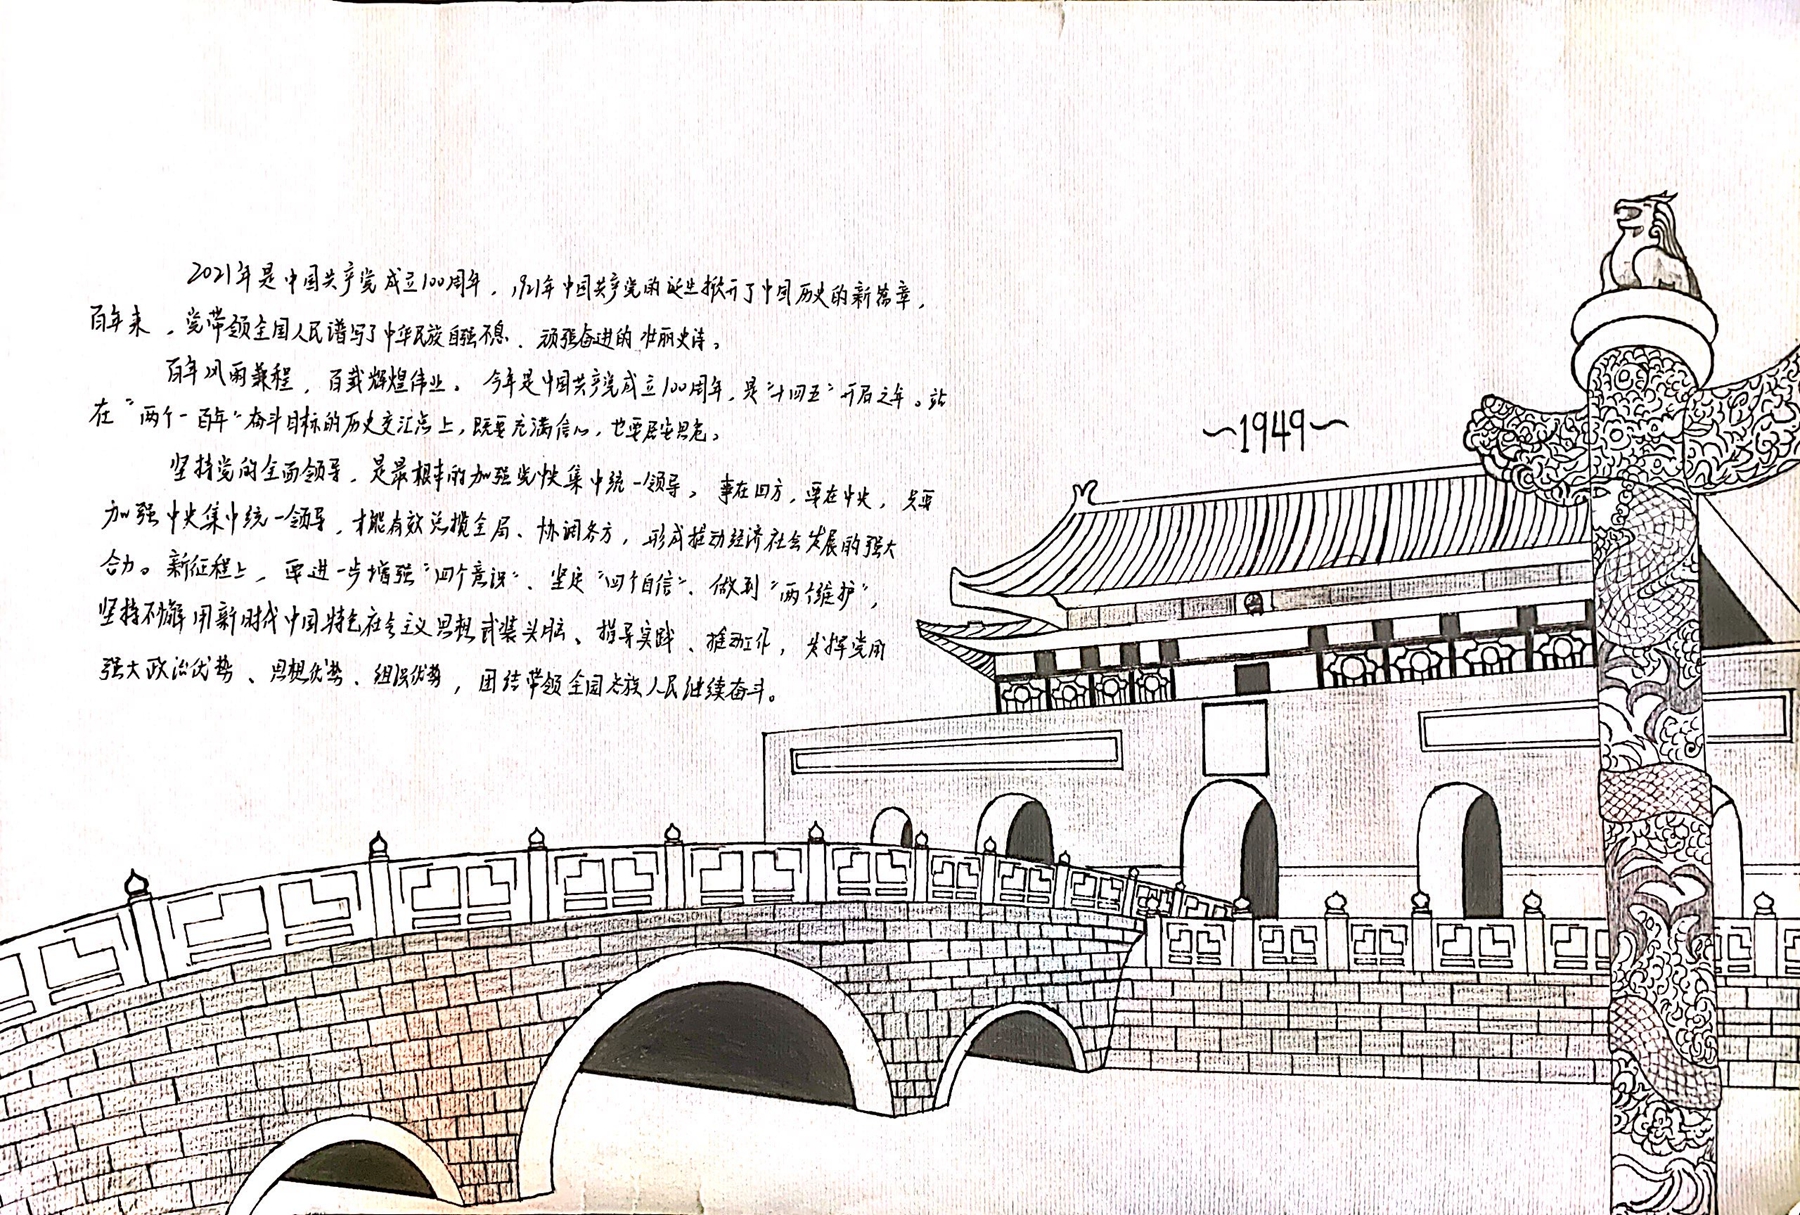 2021年是中国共产党成立100周年，1921年中国共产党的诞生掀开了中国历史的新篇章，
百年来，党带领全国人民谱写了中华民族自强不息、顽强奋进的壮丽史诗。
百年风雨兼程，百载辉煌伟业。今年是中国共产党成立100周年，是"十四五"开启之年。站
在"两个一百年"奋斗目标的历史交汇点上，既要充满信心，也要居安思危。
坚持党的全面领导，是最根本的加强党中央集中统一领导。事在四方，要在中央，只要
加强中央集中统一领导，才能有效总揽全局、协调各方，形成推动经济社会发展的强大
合力。新征程上，要进一步增强"四个意识"、坚定"四个自信"、做到"两个维护"，
坚持不懈用新时代中国特色社会主义思想武装头脑、指导实践、推动工作，发挥党的
强大政治优势、思想优势、组织优势，团结带领全国各族人民继续奋斗。
~1949~